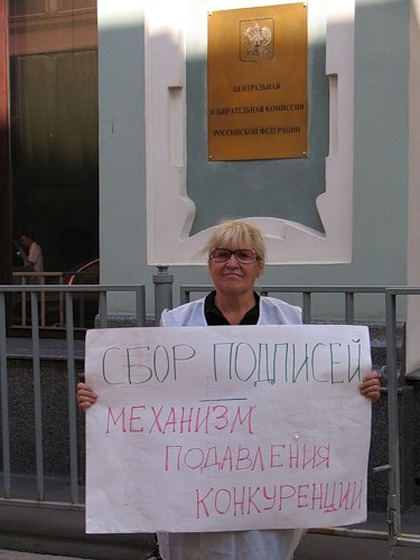 ЦЕНТРАЛЬНАЯ
ИЗБИРАТЕЛЬНАЯ КОМИССИЯ
РОССИЙСКОЙ ФЕДЕРАЦИИ
СБОР ПОДПИСЕЙ
—
МЕХАНИЗМ
ПОДАВЛЕНИЯ
КОНКУРЕНЦИИ